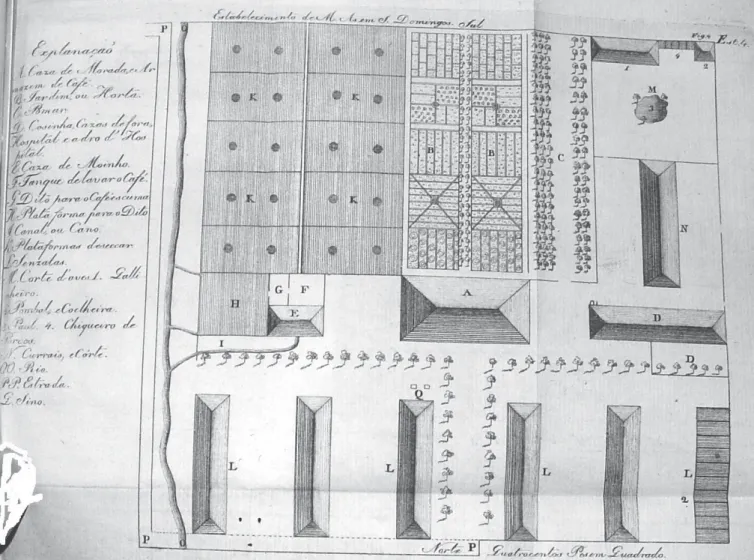 Estabelecimento de M. As em S. Domingos. Sul
Fig. 4 Est. 4.
Explanaçaõ
A. Caza de Morada, e Ar
mazem de Café.
B. Jardim, ou Horta.
C. Pomar.
D. Cosinha, Cazas de fora,
Hospital e adro d' Hos
pital.
E. Caza de Moinho.
F. Tanque de lavar o Café.
G. Dito para o Café escuma
H. Plata forma para o Dito
I. Canal, ou Cano.
K. Plataformas de secar
L. Senzalas.
M. Corte d'aves 1. Galli
nheiro.
Pombal, e Coelheira.
Paul. 4. Chiqueiro de
Porcos.
N. Currais, e Córte.
OO. Rio.
PP. Estrada.
Q. Sino.
P
O
1
4
2
M
K
K
B
B
C
K
K
N
H
G
F
E
A
D
I
D
Q
L
L
L
L
2
P
O
Norte P
Quatrocentos Pés em Quadrado.